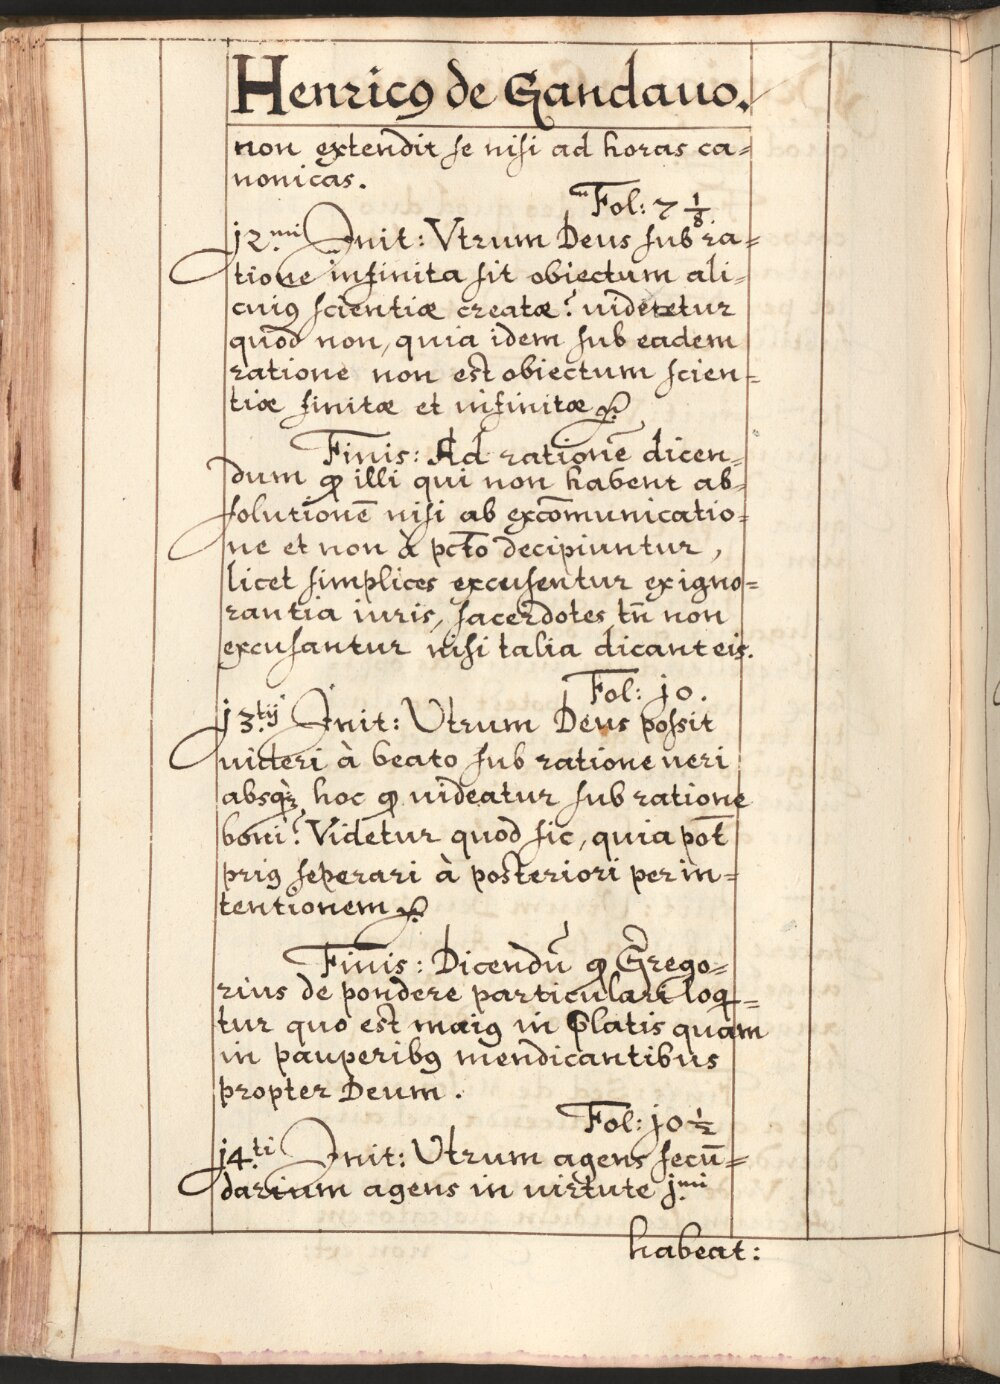 Henricꝯ de Gandauo.
non extendit se nisi ad horas ca=
nonicas.
Fol: 7 1/8.
j2.mi Init: Vtrum Deus sub ra=
tione infinita sit obiectum ali=
cuiꝯ scientiæ creatæ? uideretur
quod non, quia idem sub eadem
ratione non est obiectum scien=
tiæ finitæ et infinitæ &.
Finis: Ad rationē dicen=
dum ꝙ illi qui non habent ab=
solutionē nisi ab excōmunicatio=
ne et non à pct̄o decipiuntur,
licet simplices excusentur ex igno=
rantia iuris, sacerdotes tn̄ non
excusantur nisi talia dicant eis.
Fol: jo.
j3.tij Init: Utrum Deus possit
uideri à beato sub ratione ueri
absqꝫ hoc ꝙ uideatur sub ratione
boni? Videtur quod sic, quia pot̄
priꝯ seperari à posteriori per in=
tentionem &.
Finis: Dicendū ꝙ Grego=
rius de pondere particulari loq=
tur quo est maiꝯ in Platis quam
in pauperibꝯ mendicantibus
propter Deum.
Fol: jo 1/2
j4.ti Init: Utrum agens secū=
darium agens in uirtute j.mi
habeat: